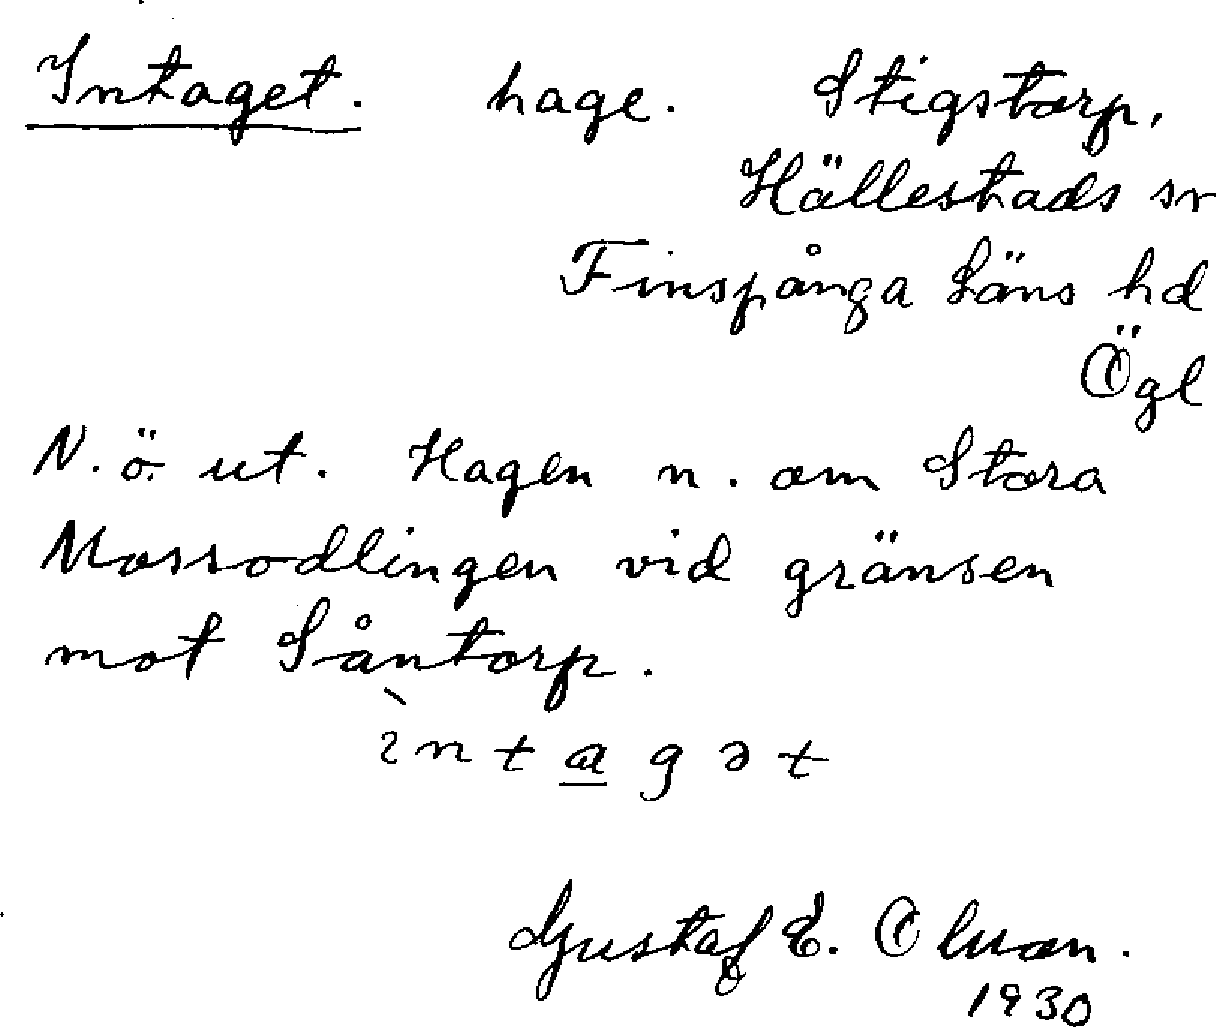 Intaget. hage. Stigstorp,
Hällestads sn
Finspånga Läns hd
Ögl
N. ö. ut. Hagen n. om Stora
Mossodlingen vid gränsen
mot Såntorp.
ìntagət
Gustaf E. Olson.
1930